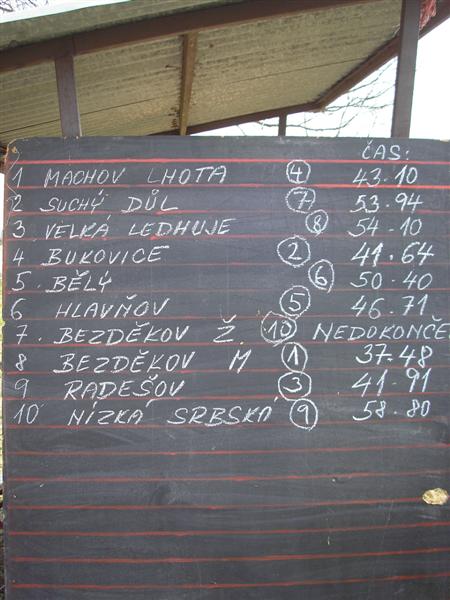 ČAS:
1 MACHOV LHOTA 4 43.10
2 SUCHÝ DŮL 7 53.94
3 VELKÁ LEDHUJE 8 54.10
4 BUKOVICE 2 41.64
5. BĚLÝ 6 50.40
6 HLAVŇOV 5 46.71
7. BEZDĚKOV Ž 10 NEDOKONČE
8 BEZDĚKOV M 1 37.48
9 RADEŠOV 3 41.91
10 NÍZKÁ SRBSKÁ 9 58.80